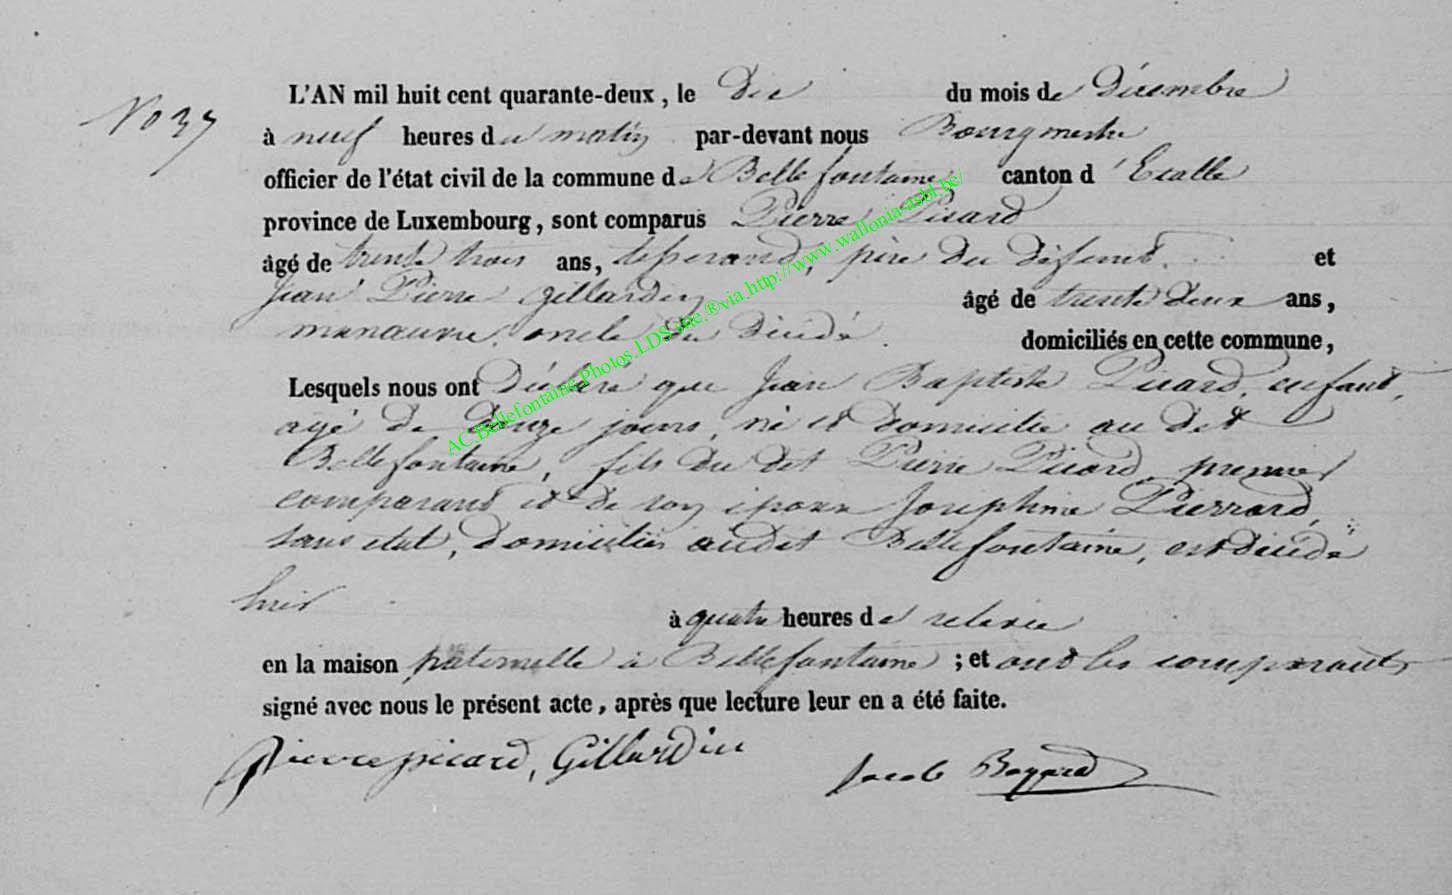 No 37
L'AN mil huit cent quarante-deux, le dix du mois de décembre
à neuf heures du matin par-devant nous Bourgmestre
officier de l'état civil de la commune de Bellefontaine canton d'Etalle
province de Luxembourg, sont comparus Pierre Picard
âgé de trente trois ans, tisserand, père du défunt. et
Jean Pierre Gillardin âgé de trente deux ans,
manœuvre, oncle du décédé. domiciliés en cette commune,
Lesquels nous ont déclaré que Jean Baptiste Picard, enfant,
agé de jours, né et domicilié au dit
Bellefontaine, fils du dit Pierre Picard premier
comparant et de son épouse Joséphine Pierrard,
sans état, domiciliés audit Bellefontaine, est décédé
hier à quatre heures de relevée
en la maison paternelle à Bellefontaine ; et ont les comparants
signé avec nous le présent acte, après que lecture leur en a été faite.
Pierre picard, Gillardin Jacob
AC.Bellefontaine.Photos.LDS.site.®via.http://www.wallonia-asbl.be/